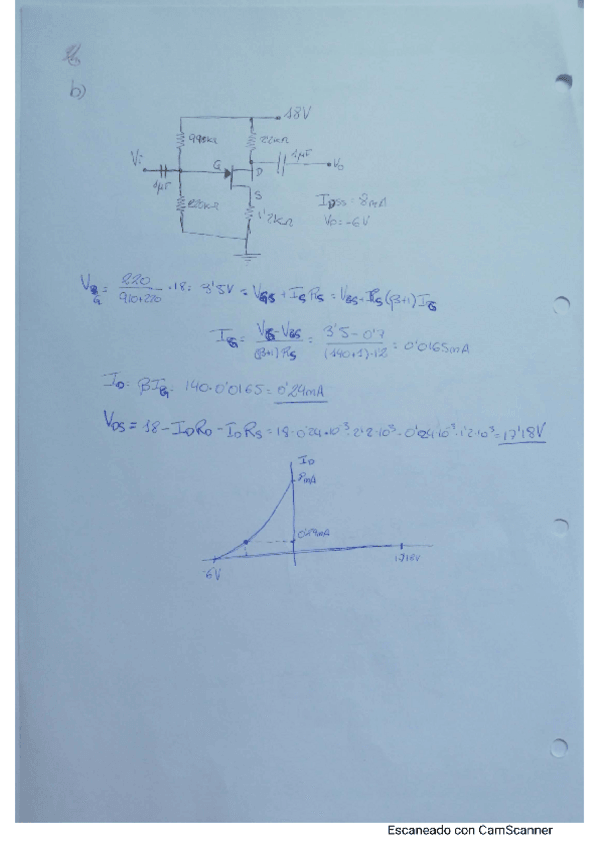 b)
18V
2'2KΩ
Vi
1μF
G
D
S
1μF
Vo
220KΩ
1'2KΩ
IDSS = 8mA
Vp = -6V
VG = 220 / 910+220 · 18 = 3'5V = VGS + IS RS = VGS + RS (β+1) IG
IG = VG - VGS / (β+1) RS = 3'5 - 0'7 / (140+1)·1'2 = 0'0165mA
ID = βIG = 140 · 0'0165 = 0'24mA
VDS = 18 - IDRD - IDRS = 18 - 0'24·10⁻³ · 2'2·10³ - 0'24·10⁻³ · 1'2·10³ = 17'18V
ID
8mA
0'24mA
-6V
17'18V
Escaneado con CamScanner